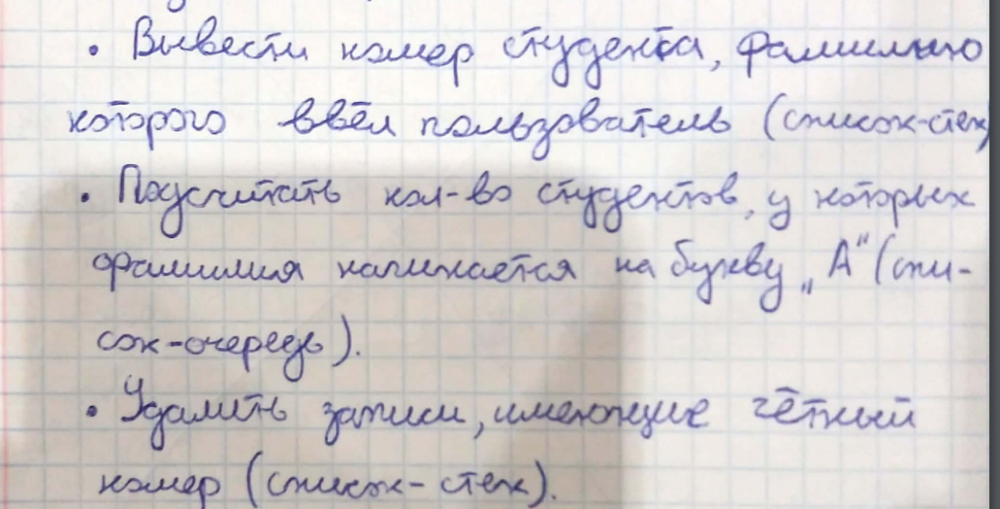 • Вывести номер студента, фамилию
которого ввёл пользователь (список-стек)
• Подсчитать кол-во студентов, у которых
фамилия начинается на букву „А" (спи-
сок-очередь).
• Удалить записи, имеющие чётный
номер (список-стек).